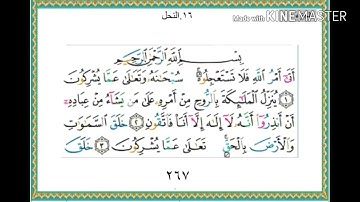 ١٦.النحل
Made with KINEMASTER
بِسْمِ اللَّهِ الرَّحْمَٰنِ الرَّحِيمِ
أَتَىٰ أَمْرُ اللَّهِ فَلَا تَسْتَعْجِلُوهُ سُبْحَٰنَهُ وَتَعَٰلَىٰ عَمَّا يُشْرِكُونَ
١ يُنَزِّلُ الْمَلَٰٓئِكَةَ بِالرُّوحِ مِنْ أَمْرِهِ عَلَىٰ مَن يَشَآءُ مِنْ عِبَادِهِ
أَنْ أَنذِرُوٓا أَنَّهُ لَآ إِلَٰهَ إِلَّآ أَنَا فَاتَّقُونِ ٢ خَلَقَ السَّمَٰوَٰتِ
وَالْأَرْضَ بِالْحَقِّ تَعَٰلَىٰ عَمَّا يُشْرِكُونَ ٣ خَلَقَ
٢٦٧